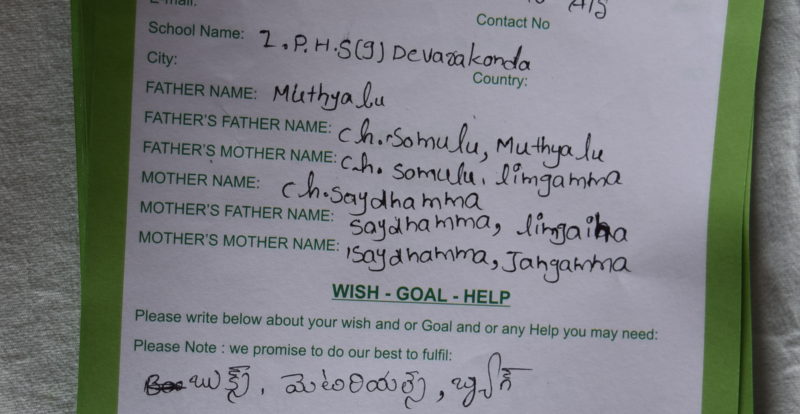 E-mail:
Contact No
School Name: Z.P.H.S(g) Devarakonda
City: Country:
FATHER NAME: Muthyalu
FATHER'S FATHER NAME: ch.Somulu, Muthyalu
FATHER'S MOTHER NAME: c.h. somulu. limgamma
MOTHER NAME: ch.saydhamma
MOTHER'S FATHER NAME: saydhamma, lingaiha
MOTHER'S MOTHER NAME: saydhamma, Jangamma
WISH - GOAL - HELP
Please write below about your wish and or Goal and or any Help you may need:
Please Note : we promise to do our best to fulfil:
బుక్స్, మెటిరియల్స్, బ్యాగ్